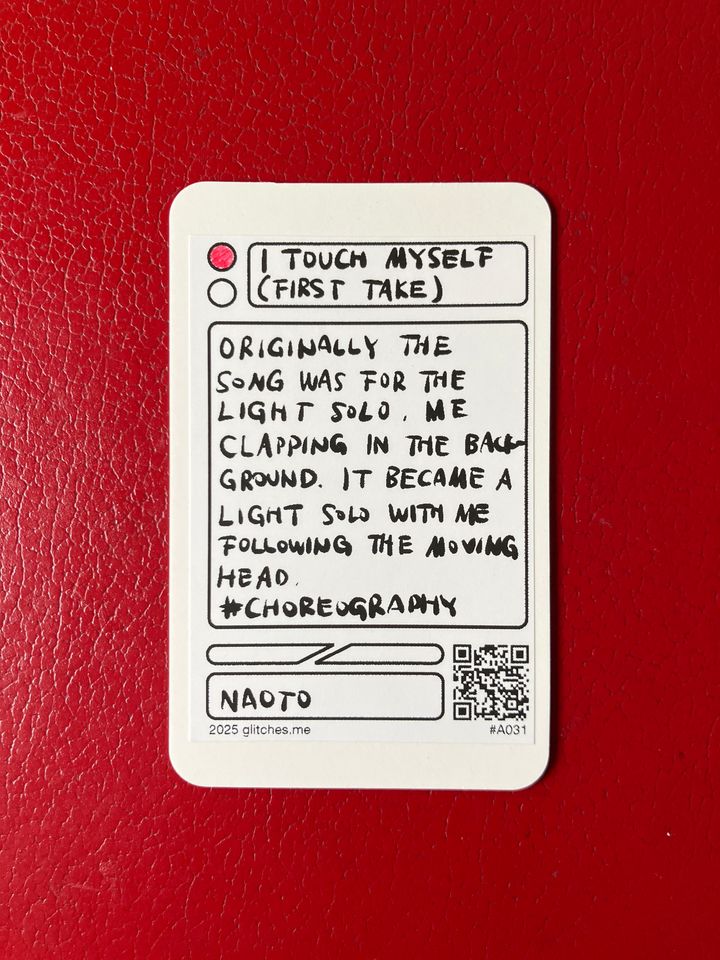 I TOUCH MYSELF
(FIRST TAKE)
ORIGINALLY THE
SONG WAS FOR THE
LIGHT SOLO, ME
CLAPPING IN THE BACK-
GROUND. IT BECAME A
LIGHT SOLO WITH ME
FOLLOWING THE MOVING
HEAD.
#CHOREOGRAPHY
NAOTO
2025 glitches.me
#A031